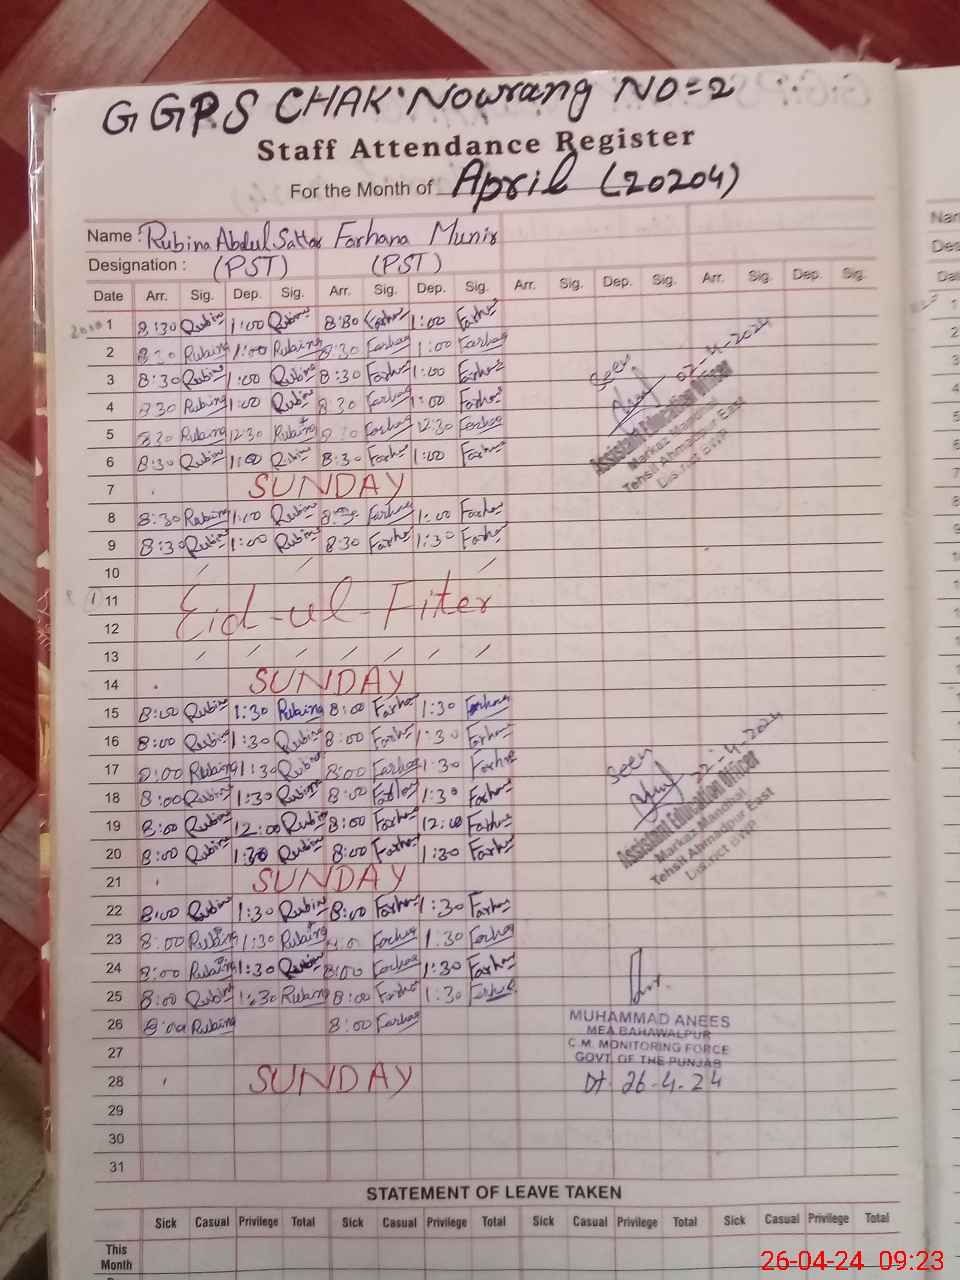 G GPS CHAK Nowrang NO=2
Staff Attendance Register
For the Month of April (20204)
Name : Rubina Abdul Sattar Farhana Munir
Designation : (PST) (PST)
Date Arr. Sig. Dep. Sig. Arr. Sig. Dep. Sig. Arr. Sig. Dep. Sig. Arr. Sig. Dep. Sig.
1 8:30 Rubina 1:00 Rubina 8:30 Farhana 1:00 Farhana
2 8:30 Rubina 1:00 Rubina 8:30 Farhana 1:00 Farhana
3 8:30 Rubina 1:00 Rubina 8:30 Farhana 1:00 Farhana
4 8:30 Rubina 1:00 Rubina 8:30 Farhana 1:00 Farhana
5 8:30 Rubina 12:30 Rubina 8:30 Farhana 12:30 Farhana
6 8:30 Rubina 1:00 Rubina 8:30 Farhana 1:00 Farhana
Seen
02-4-2024
Assistant Education Officer
Markaz Maudhal
Tehsil Ahmadpur East
District BWP
7 SUNDAY
8 8:30 Rubina 1:00 Rubina 8:30 Farhana 1:00 Farhana
9 8:30 Rubina 1:00 Rubina 8:30 Farhana 1:30 Farhana
10
11 Eid-ul-Fiter
12
13
14 SUNDAY
15 8:00 Rubina 1:30 Rubina 8:00 Farhana 1:30 Farhana
16 8:00 Rubina 1:30 Rubina 8:00 Farhana 1:30 Farhana
17 8:00 Rubina 1:30 Rubina 8:00 Farhana 1:30 Farhana
18 8:00 Rubina 1:30 Rubina 8:00 Farhana 1:30 Farhana
19 8:00 Rubina 12:00 Rubina 8:00 Farhana 12:00 Farhana
20 8:00 Rubina 1:30 Rubina 8:00 Farhana 1:30 Farhana
Seen
22-4-2024
Assistant Education Officer
Markaz Maudhal
Tehsil Ahmadpur East
District BWP
21 SUNDAY
22 8:00 Rubina 1:30 Rubina 8:00 Farhana 1:30 Farhana
23 8:00 Rubina 1:30 Rubina Farhana 1:30 Farhana
24 8:00 Rubina 1:30 Rubina 8:00 Farhana 1:30 Farhana
25 8:00 Rubina 1:30 Rubina 8:00 Farhana 1:30 Farhana
26 8:00 Rubina 8:00 Farhana
27
28 SUNDAY
29
30
31
MUHAMMAD ANEES
MEA BAHAWALPUR
C.M. MONITORING FORCE
GOVT. OF THE PUNJAB
Dt. 26-4-24
STATEMENT OF LEAVE TAKEN
Sick Casual Privilege Total Sick Casual Privilege Total Sick Casual Privilege Total Sick Casual Privilege Total
This
Month
26-04-24 09:23